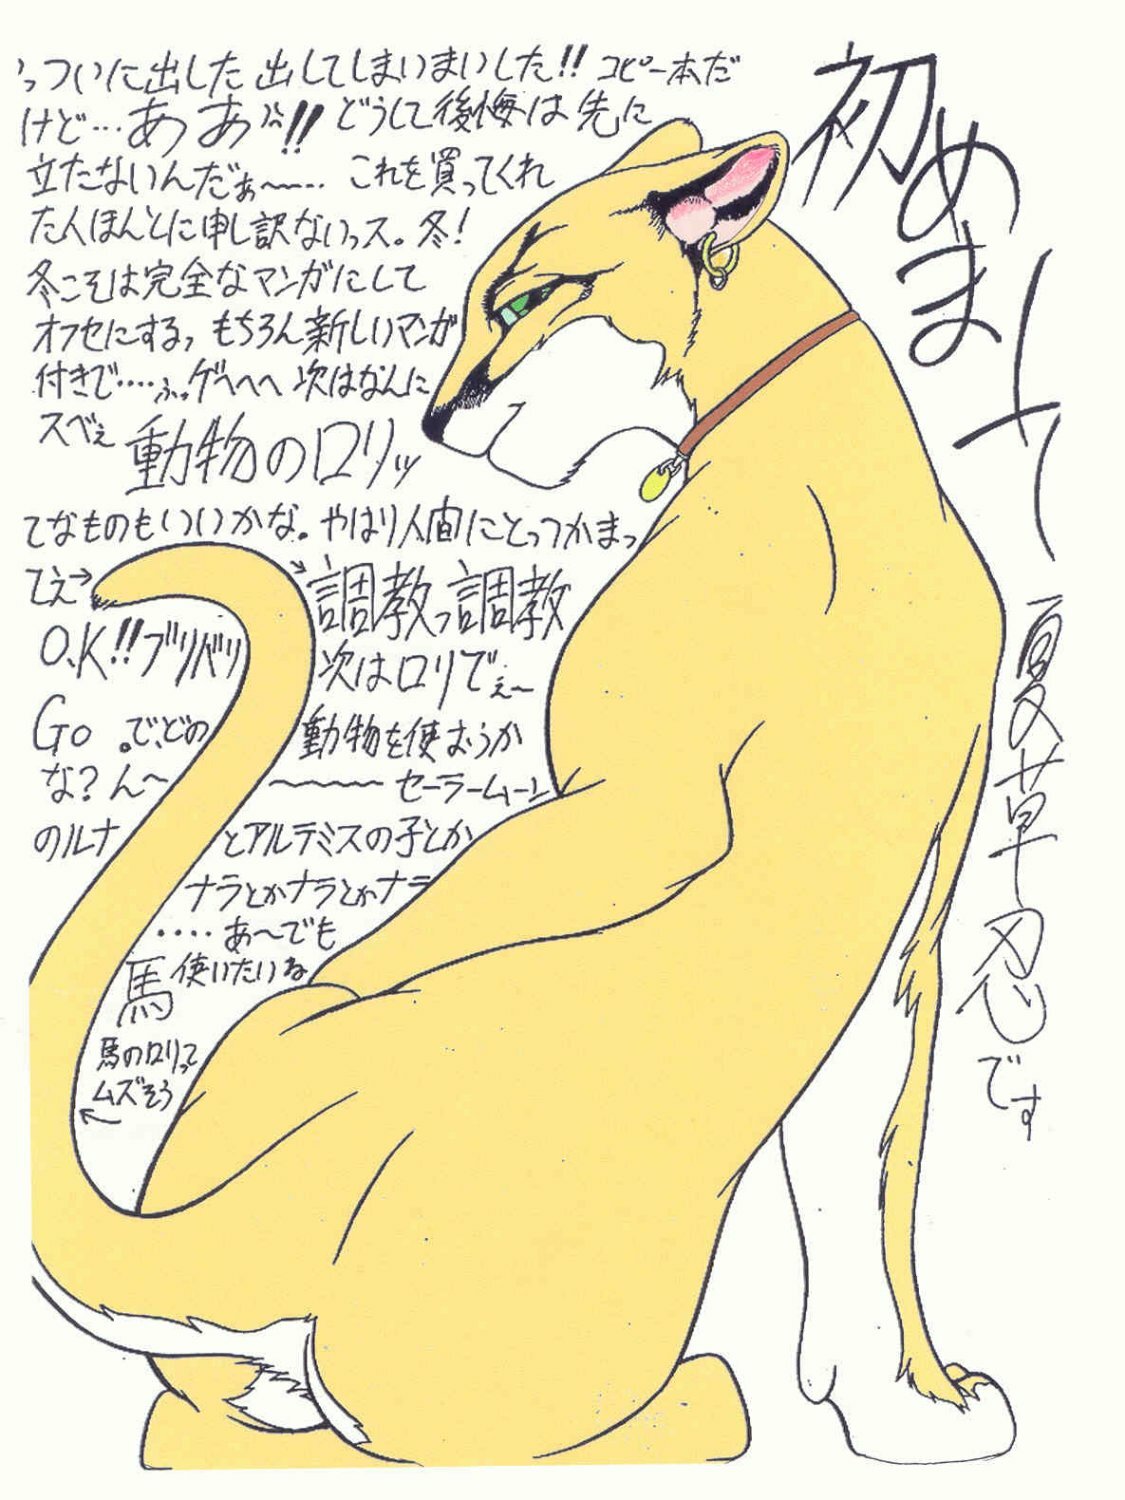 初めまして
夏草忍です
っついに出した 出してしまいまいした!! コピー本だ
けど…ああ゛!! どうして後悔は先に
立たないんだぁ〜〜… これを買ってくれ
た人ほんとに申し訳ないっス。冬!
冬こそは完全なマンガにして
オフセにする, もちろん新しいマンガ
付きで‥‥ふっゲへへへ 次はなんに
スべぇ 動物のロリッ
てなものもいいかな。やはり人間にとっつかまっ
てえ→ 調教っ調教
O.K!!ブリバリ 次はロリでぇ〜
Go 。で、どの 動物を使おうか
な?ん〜 〜〜〜〜 セーラームーン
のルナ とアルテミスの子とか
ナラとかナラとかナラ
‥‥あ〜でも
馬 使いたいね
馬のロリって
ムズそう